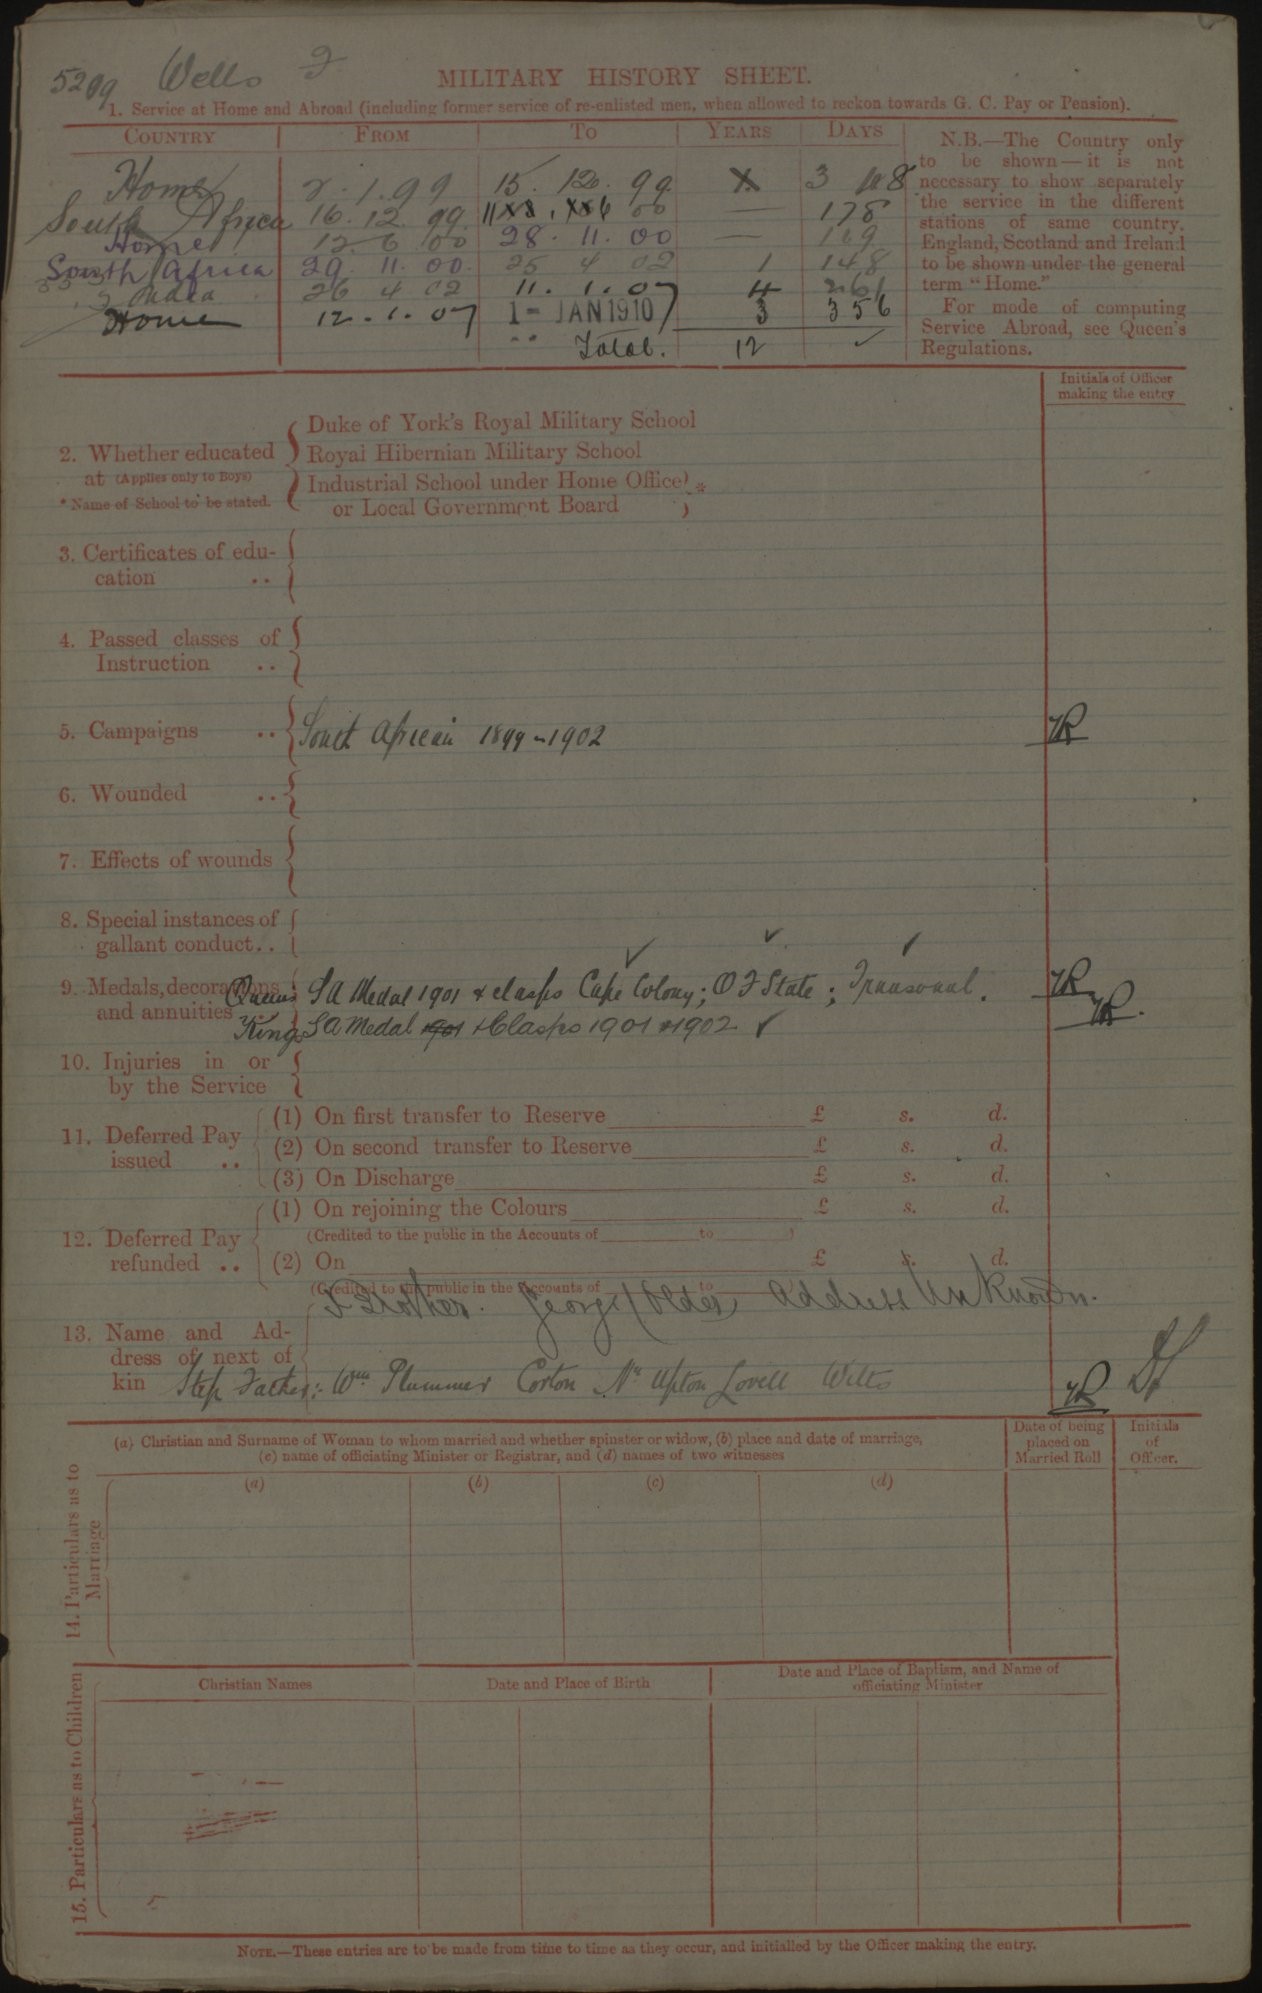 5299 Wells F
MILITARY HISTORY SHEET.
1. Service at Home and Abroad (including former service of re-enlisted men, when allowed to reckon towards G. C. Pay or Pension).
COUNTRY FROM TO YEARS DAYS
Home 2. 1. 99 15. 12. 99 3 8
South Africa 16. 12. 99 6 00 — 178
Home 12 6 00 28. 11. 00 — 169
South Africa 29 11. 00 25 4 02 1 148
India 26 4 02 11. 1. 07 4 261
Home 12. 1. 07 1 - JAN 1910 3 356
Total. 12 ✓
N.B.—The Country only
to be shown—it is not
necessary to show separately
the service in the different
stations of same country.
England, Scotland and Ireland
to be shown under the general
term "Home."
For mode of computing
Service Abroad, see Queen's
Regulations.
Initials of Officer
making the entry
2. Whether educated
at (Applies only to Boys)
* Name of School to be stated.
Duke of York's Royal Military School
Royal Hibernian Military School
Industrial School under Home Office *
or Local Government Board
3. Certificates of edu-
cation ..
4. Passed classes of
Instruction ..
5. Campaigns .. South African 1899-1902
6. Wounded ..
7. Effects of wounds
8. Special instances of
gallant conduct..
9. Medals, decorations
and annuities
Queens S A Medal 1901 & clasps Cape Colony; O F State; Transvaal.
Kings S A Medal 1901 & Clasps 1901 & 1902 ✓
10. Injuries in or
by the Service
11. Deferred Pay
issued ..
(1) On first transfer to Reserve £ s. d.
(2) On second transfer to Reserve £ s. d.
(3) On Discharge £ s. d.
12. Deferred Pay
refunded ..
(1) On rejoining the Colours £ s. d.
(Credited to the public in the Accounts of to )
(2) On £ s. d.
(Credited to the public in the Accounts of to
Brother. George (Older) Address Unknown.
13. Name and Ad-
dress of next of
kin
Step Father:- Wm Plummer Corton Nr Upton Lovell Wilts
14. Particulars as to
Marriage
(a) Christian and Surname of Woman to whom married and whether spinster or widow, (b) place and date of marriage,
(c) name of officiating Minister or Registrar, and (d) names of two witnesses
Date of being
placed on
Married Roll
Initials
of
Officer.
(a) (b) (c) (d)
15. Particulars as to Children
Christian Names
Date and Place of Birth
Date and Place of Baptism, and Name of
officiating Minister
NOTE.—These entries are to be made from time to time as they occur, and initialled by the Officer making the entry.